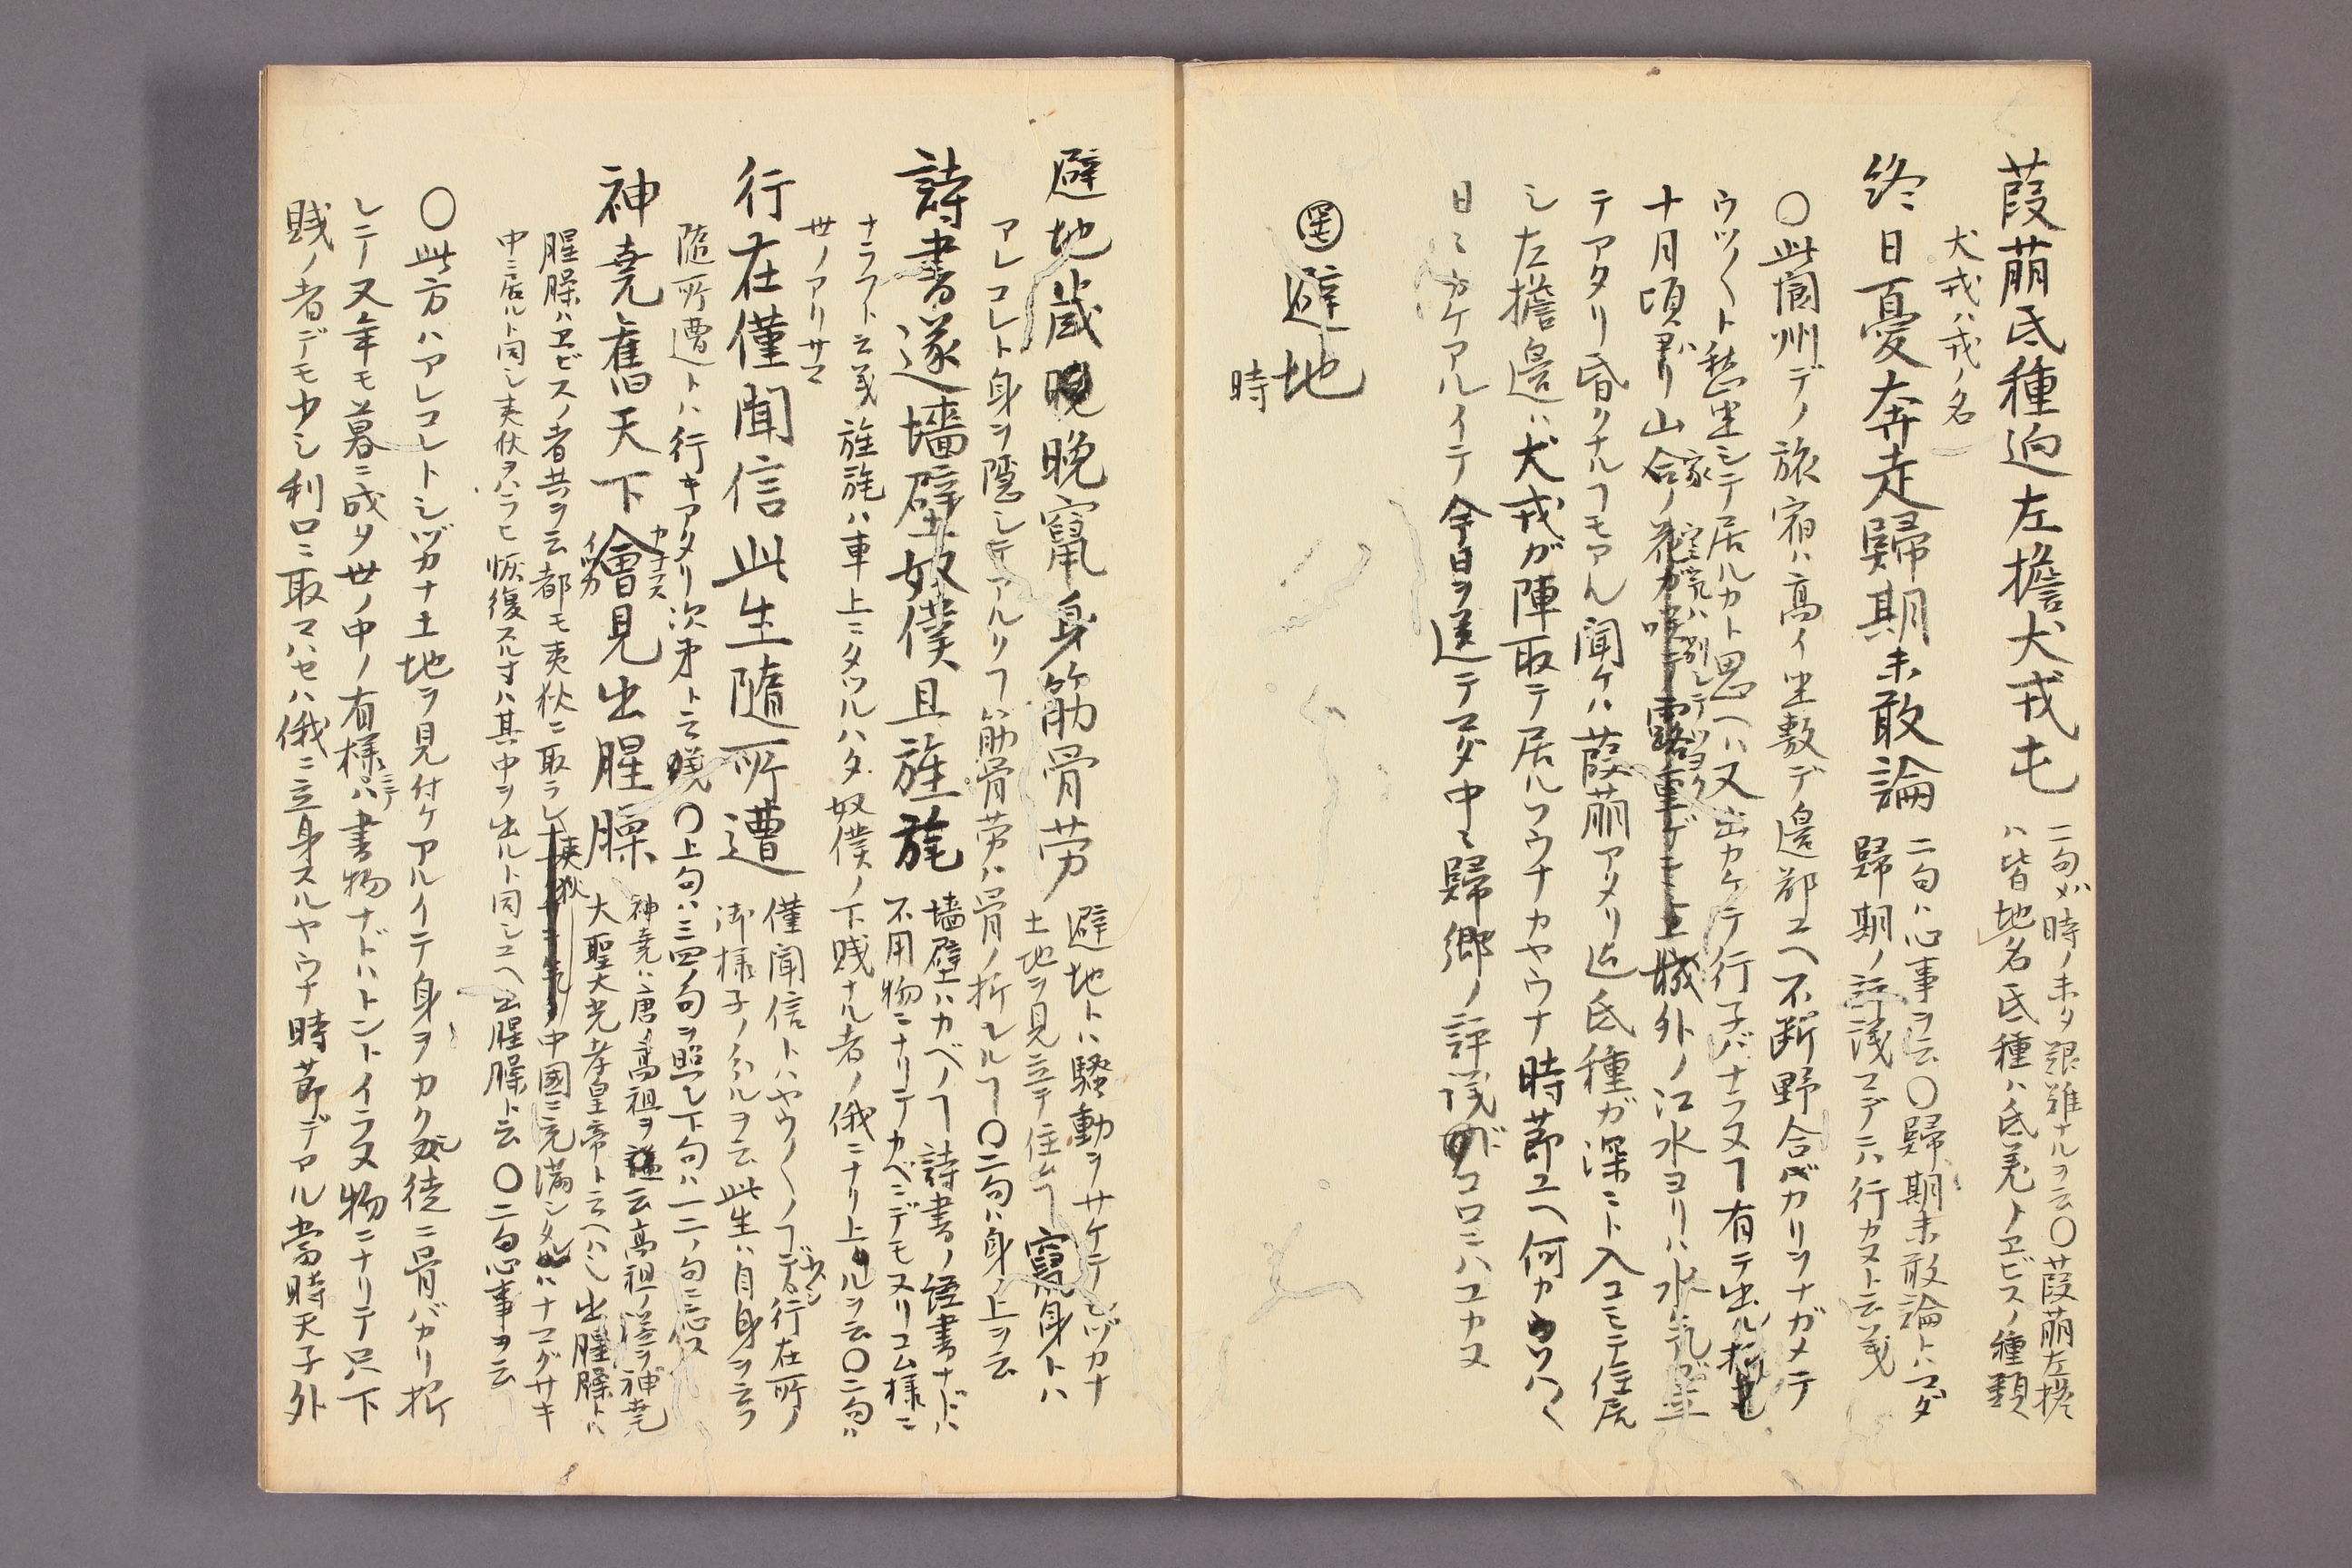 葭萌氐種迫左擔犬戎屯
二句ハ時ノ未タ艱難ナルヲ云〇葭萌左擔
ハ皆地名氐種ハ氐羌トヱビスノ種類
犬戎ハ戎ノ名
終日憂奔走歸期未敢論
二句ハ心事ヲ云〇歸期未敢論トハマダ
歸期ノ評議マデニハ行カヌト云義
〇此閬州デノ旅宿ハ高イ坐敷デ邊鄙ユヘ不断野合バカリヲナガメテ
ウツ〱ト愁坐シテ居ルカト思ヘハ又出カケテ行子バナラヌヿ有テ出ル
十月頃ヨリ山家
テアタリ昏クナルヿモアル聞ケハ葭萌アタリ近氐種ガ深ニト入コミテ住居
シ左擔邊ハ犬戎ガ陣取テ居ルソウナカヤウナ時節ユヘ何カ
日ミカケアルイテ今日ヲ送テマダ中ミ歸郷ノ評議ガコロニハユカヌ
避地
時
避地歳晩晩竄身筋骨労
避地トハ騒動ヲサケテシヅカナ
土地ヲ見立テ住ムヿ竄身トハ
アレコレト身ヲ隠シテアルクヿ筋骨労ハ骨ノ折ルルヿ〇二句ハ身ノ上ヲ云
詩書遂墻壁奴僕且旌旄
墻壁ハカベノヿ詩書ノ経書ナドハ
不用物ニナリテカベニデモヌリコム様ニ
ナラフト云義旌旄ハ車上ニタツルハタ奴僕ノ下賤ナル者ノ俄ニナリ上ルヲ云〇二句ハ
世ノアリサマ
行在僅聞信此生隨所遭
僅聞信トハヤウ〱ノヿデ行在所ノ
御様子ノ知ルヲ云此生ハ自身ヲ云フ
隨所遭トハ行キアタリ次第ト云義〇上句ハ三四ノ句ヲ照シ下句ハ一二ノ句ニ應ス
神堯舊天下會見出腥臊
神堯ハ唐ノ高祖ヲ云高祖ノ諡ヲ神堯
大聖大光孝皇帝ト云ヘハシ出腥臊トハ
腥臊ハヱビスノ者共ヲ云都モ夷狄ニ取ラレ夷狄中國ニ充満シタルハナマグサキ
中ニ居ルト同シ夷狄ヲハラヒ恢復スル寸ハ其中ヲ出ルト同シユヘ出腥臊ト云〇二句心事ヲ云
〇此方ハアレコレトシヅカナ土地ヲ見付ケアルイテ身ヲカクシ徒ニ骨バカリ折
レニース又年モ暮ニ成タ世ノ中ノ有様ニテハ書物ナドハトントイラヌ物ニナリテ只下
賤ノ者デモ少シ利口ニ取マハセハ俄ニ立身スルヤウナ時節デアル當時天子外